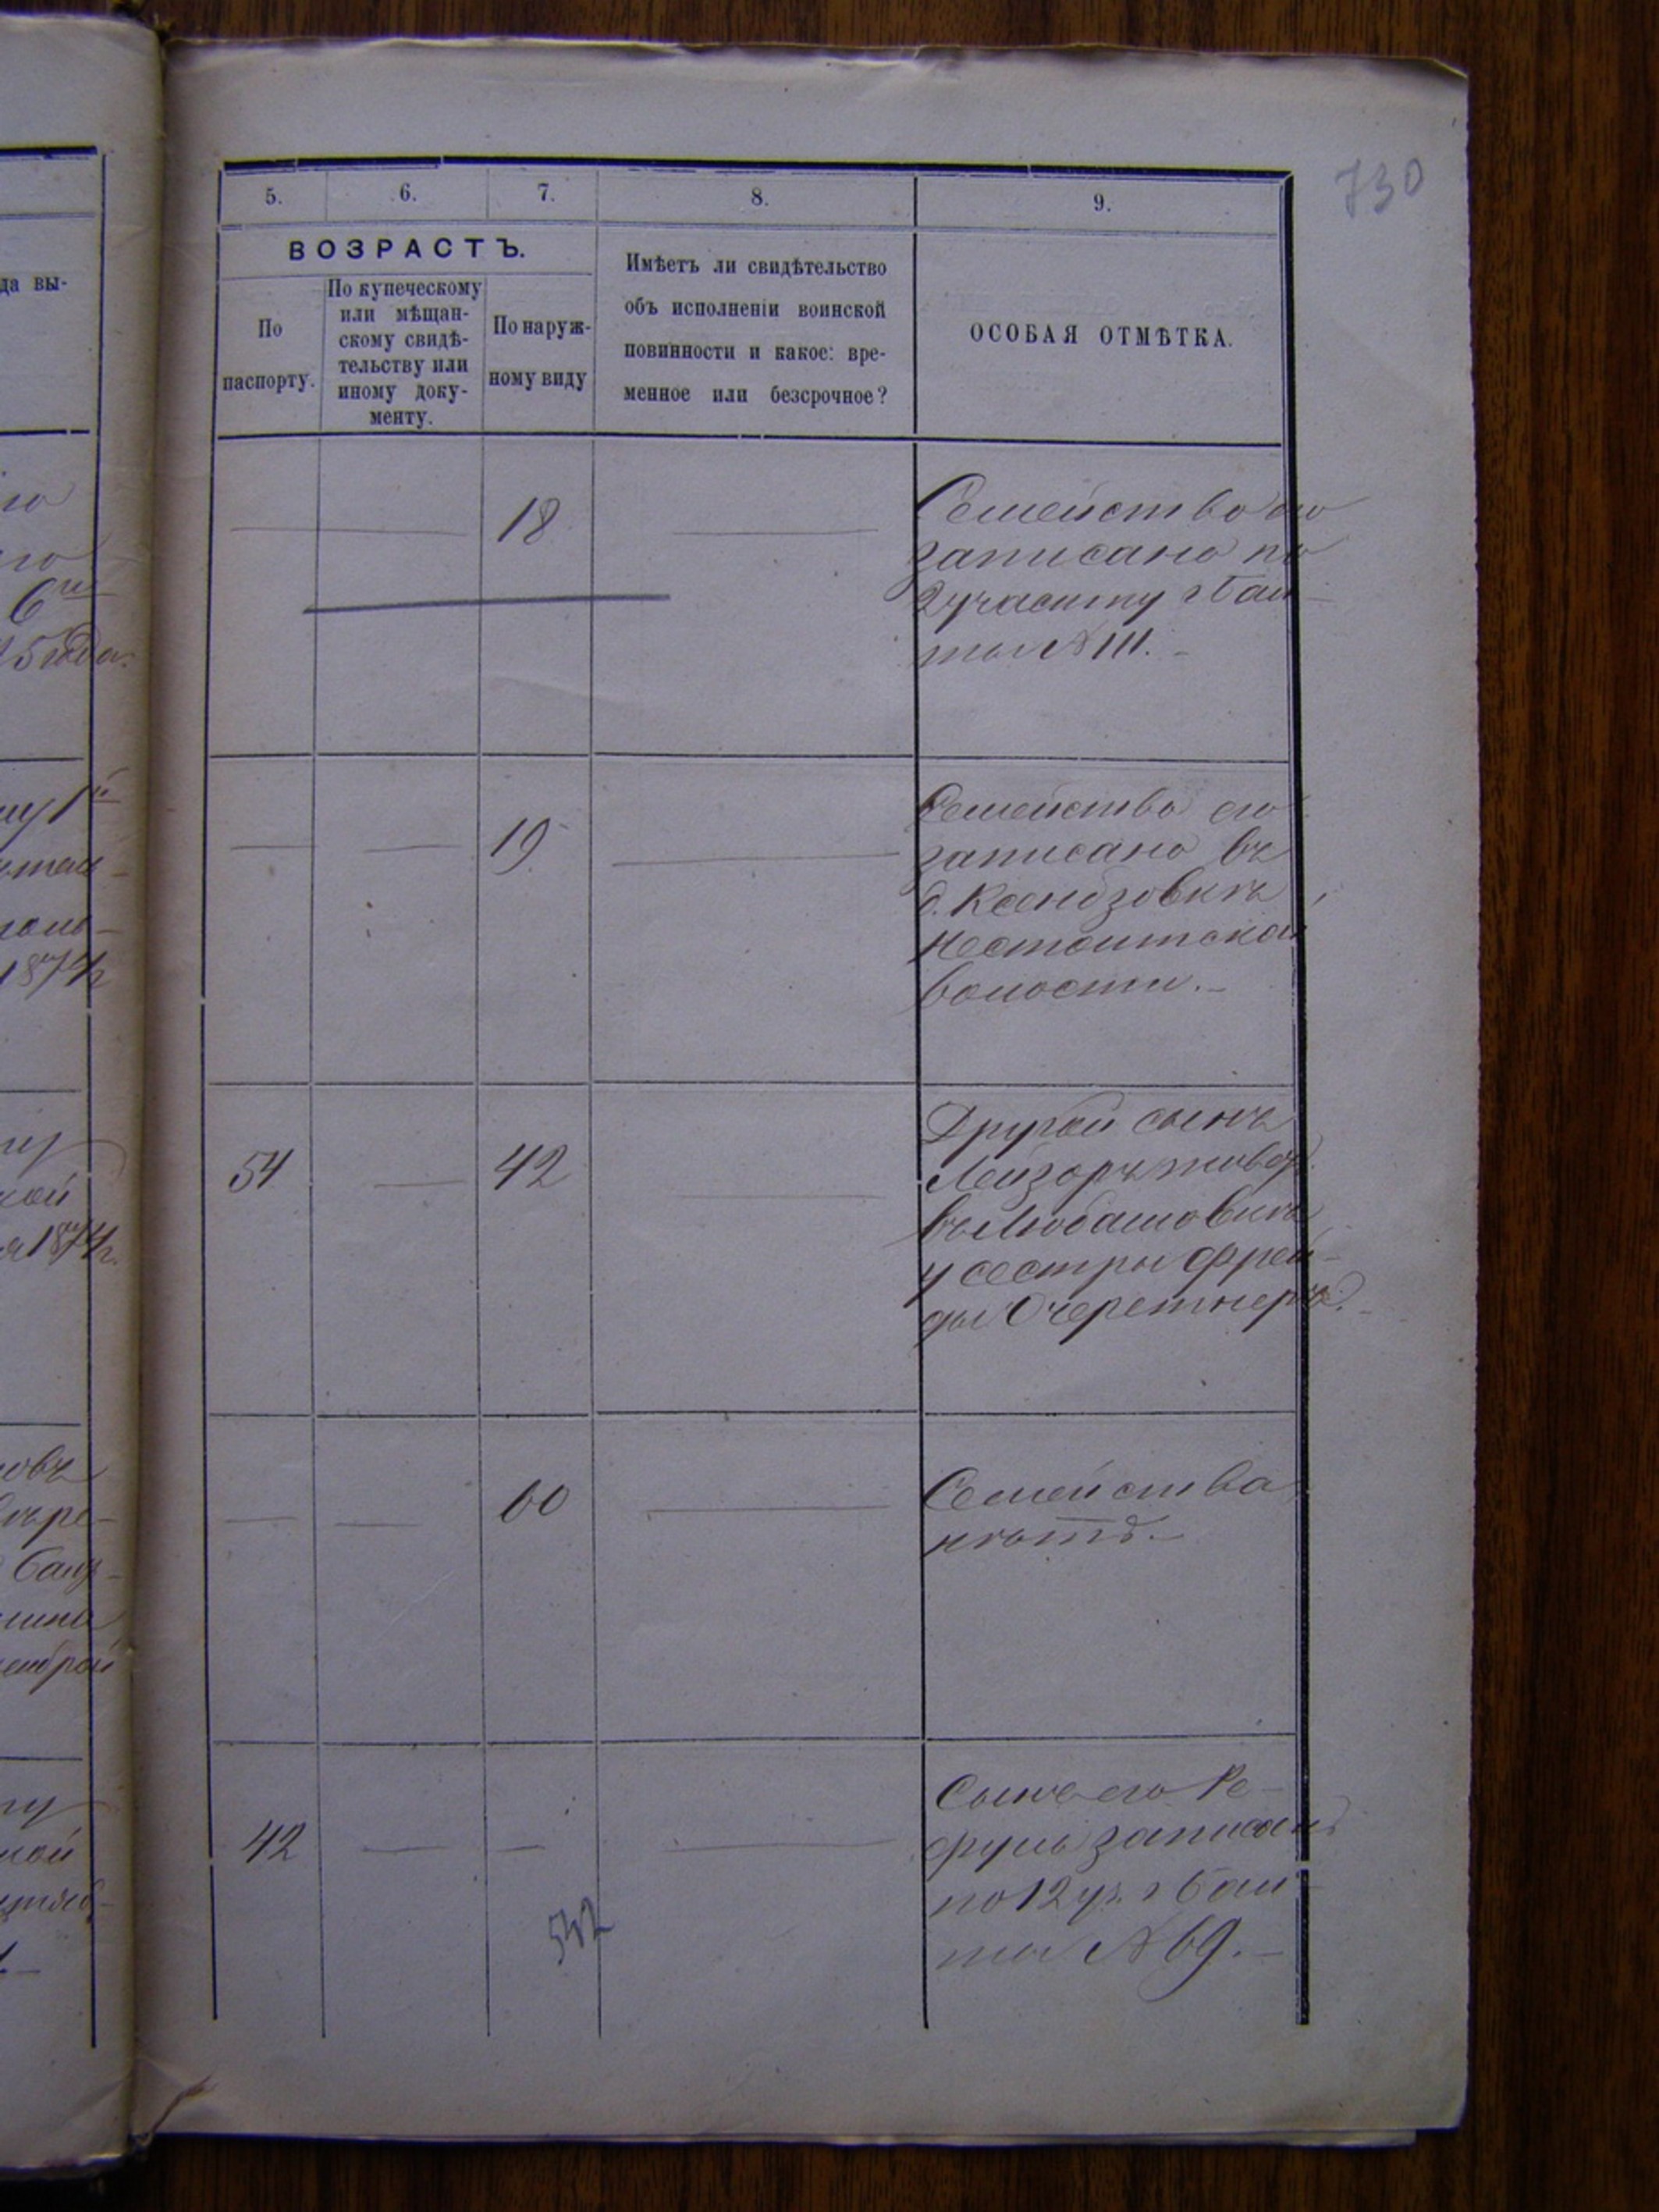 730
5. 6. 7. 8. 9.
ВОЗРАСТЪ.
По
паспорту.
По купеческому
или мѣщан-
скому свидѣ-
тельству или
иному доку-
менту.
По наруж-
ному виду
Имѣетъ ли свидѣтельство
объ исполненіи воинской
повинности и какое: вре-
менное или безсрочное?
ОСОБАЯ ОТМѢТКА.
да вы-
18
Семейство его
записано по
2 участку г Бал-
ты № 111.
19
Семейство его
записано въ
д. Ксендзовкѣ
Нестоитской
волости.
54
42
Другой сынъ
Лейзоръ живетъ
въ Любашовкѣ
у сестры Фрей-
ды Очеретнеръ.
60
Семейства
нѣтъ.
42
Сынъ его Ре-
фулъ записанъ
по 12 уч. г Бал-
ты № 69.
542
6
5 года.
1874 г
кой
1874 г.